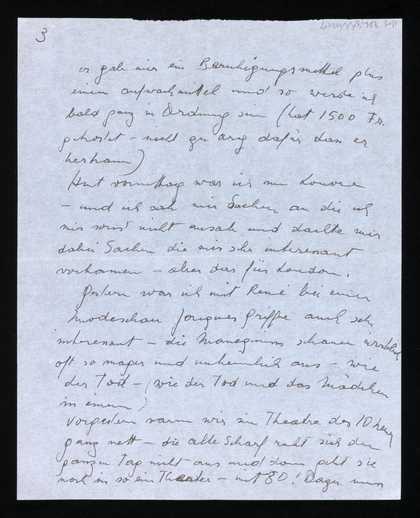 3
er gab mir ein Beruhigungsmittel plus
einen aufwachmittel und so werde ich
bald ganz in Ordnung sein (hat 1500 Fr.
gekostet – nicht zu arg dafür dass er
herkam)
Heut vormittag war ich im Louvre
– und ich sah mir Sachen an die ich
mir sonst nicht ansah und dachte mir
dabei Sachen die mir sehr interessant
vorkamen – aber das für London.
Gestern war ich mit René bei einer
Modeschau Jacques Griffe auch sehr
interessant – die Manequins schauen wirklich
oft so mager und unheimlich aus – wie
der Tod – (wie der Tod und das Mädchen
in einem)
Vorgestern waren wir im Theatre des 10 heures
ganz nett – die alte Scharf ruht sich den
ganzen Tag nicht aus und dann geht sie
noch in so ein Theater – mit 80! Dazu muss